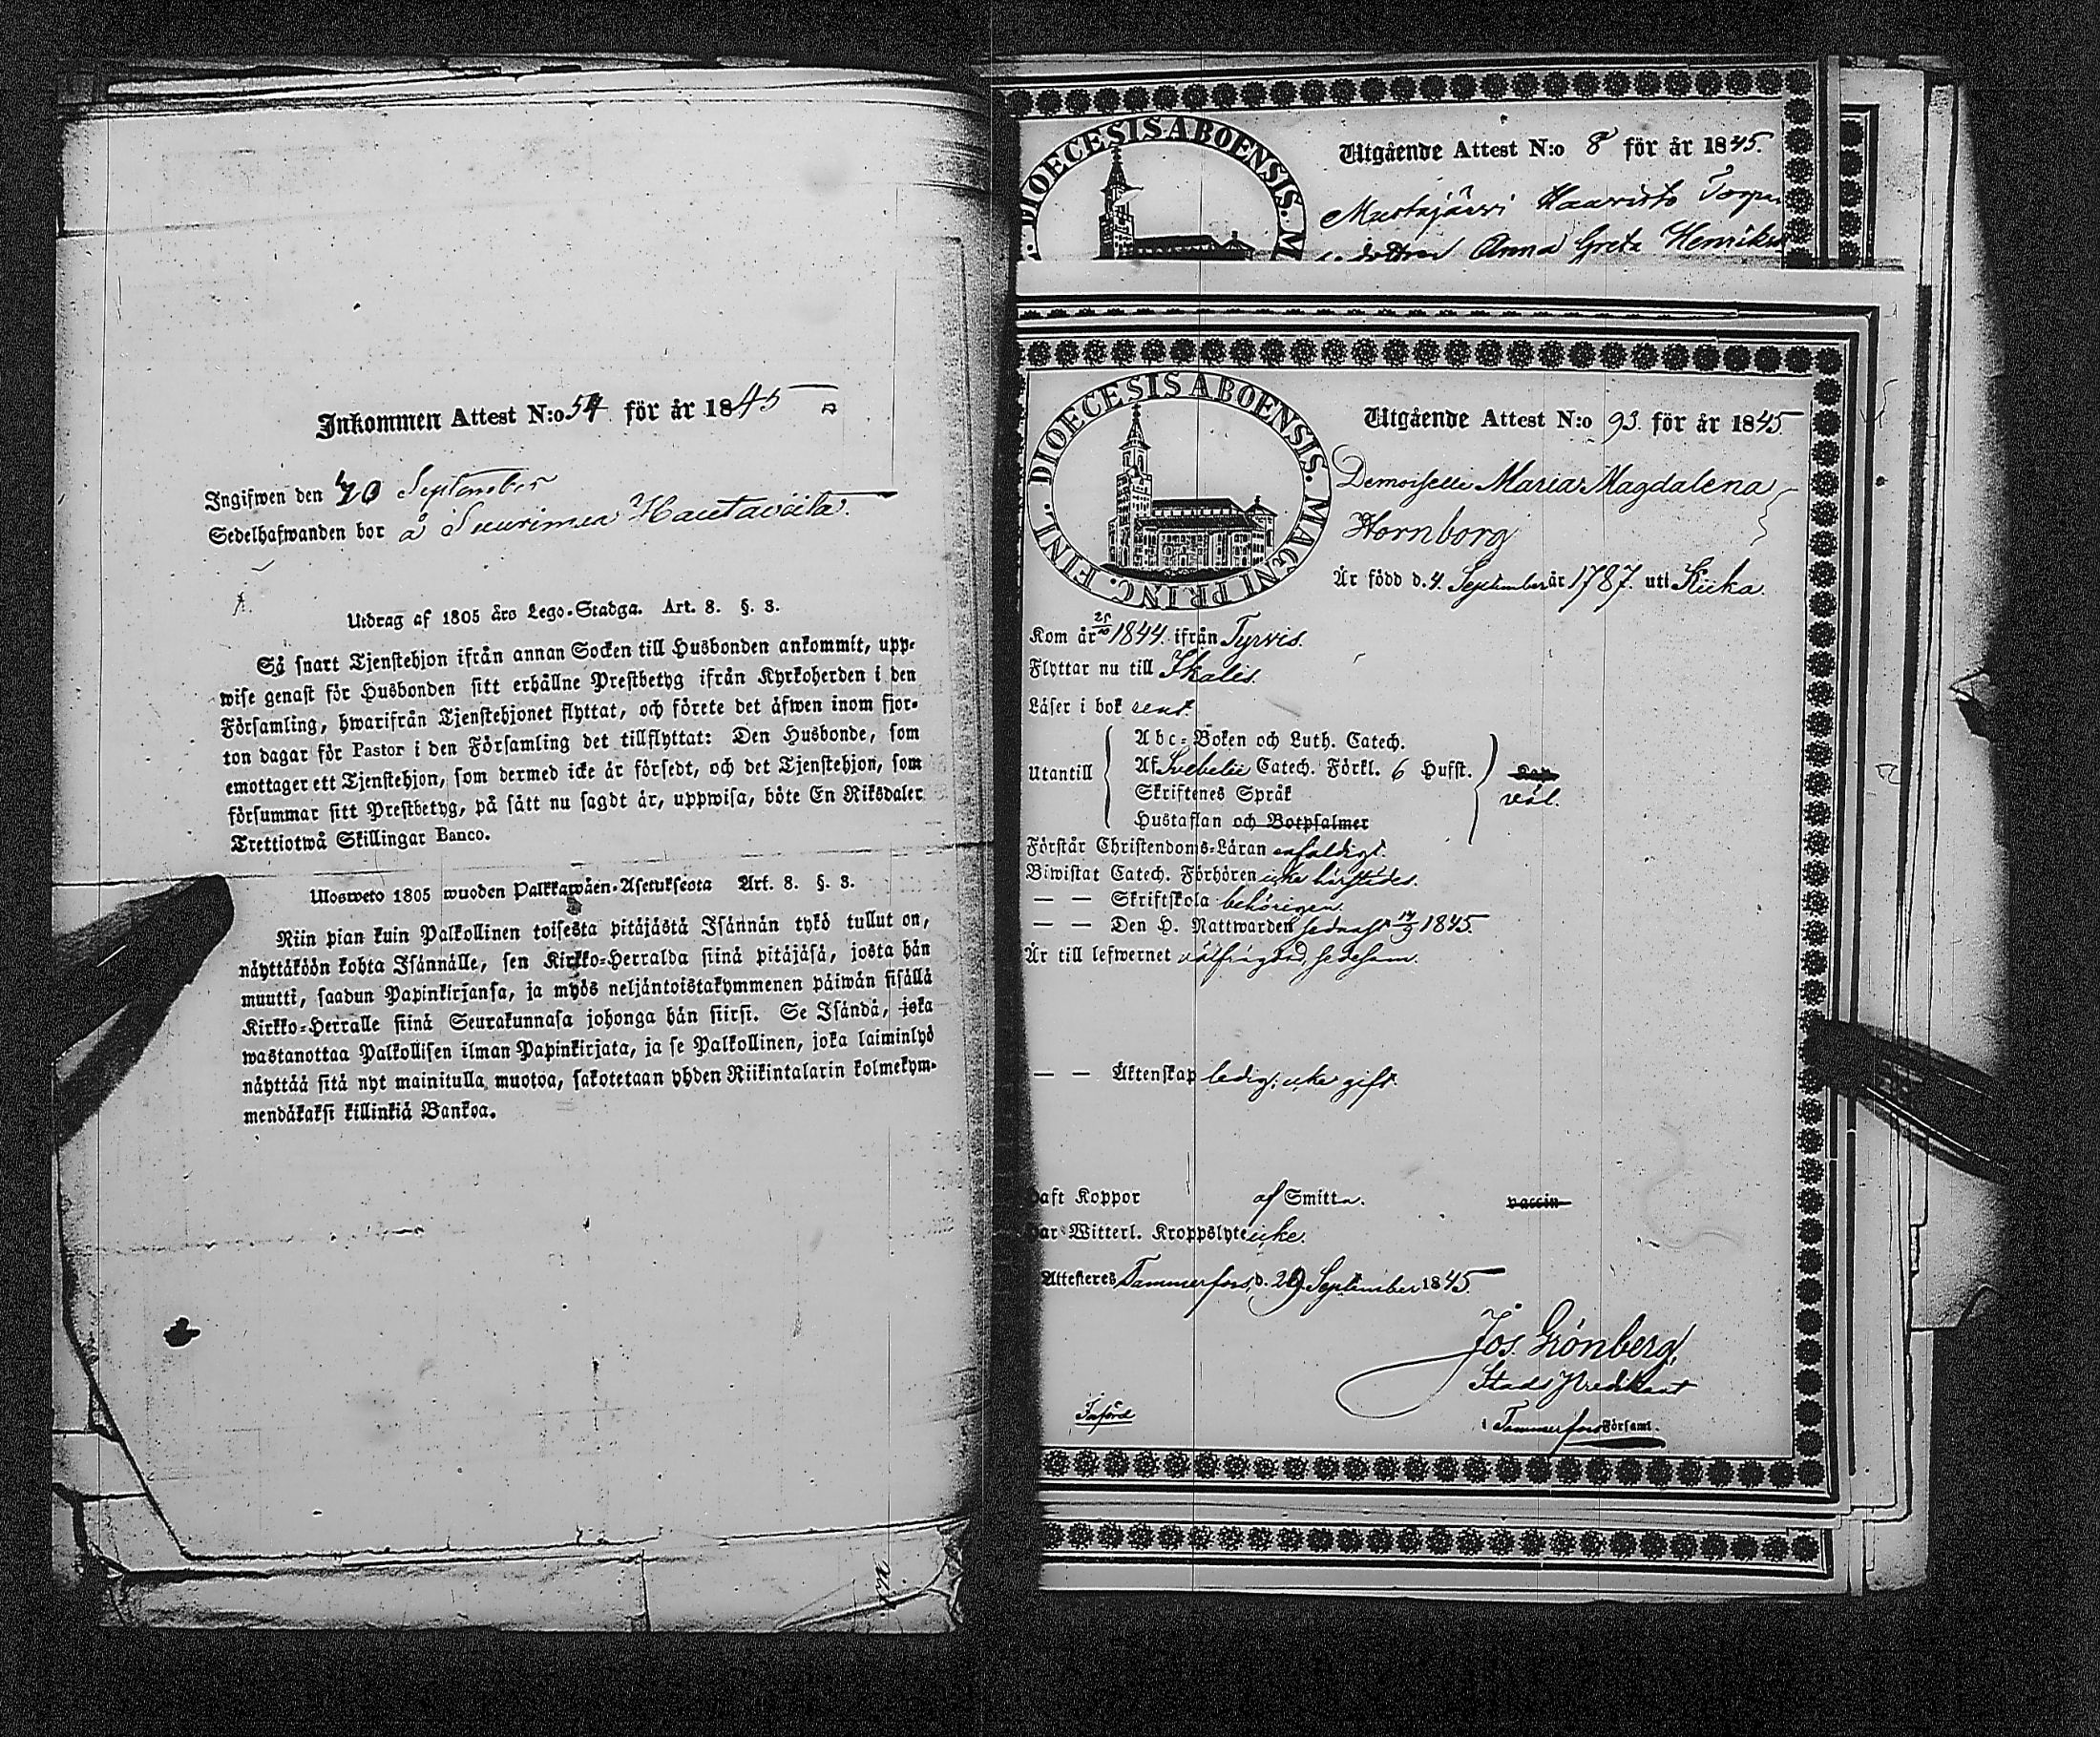 Inkommen Attest N:o 54 för år 1845
Ingifwen den 20 September
Sedelhafwanden bor å Suurimaa Hautaviita.
Utdrag af 1805 års Lego-Stadga. Art. 8. §. 3.
Så snart Tjenstehjon ifrån annan Socken till Husbonden ankommit, upp-
wise genast för Husbonden sitt erhållne Prestbetyg ifrån Kyrkoherden i den
Församling, hwarifrån Tjenstehjonet flyttat, och förete det äfwen inom fjor-
ton dagar för Pastor i den Församling det tillflyttat: Den Husbonde, som
emottager ett Tjenstehjon, som dermed icke är försedt, och det Tjenstehjon, som
försummar sitt Prestbetyg, på sätt nu sagdt är, uppwisa, böte En Riksdaler
Trettiotwå Skillingar Banco.
Uloswеto 1805 wuoden Palkkawäen-Asetuksesta Art. 8. §. 3.
Niin pian kuin Palkollinen toisesta pitäjästä Isännän tykö tullut on,
näyttäköön kohta Isännälle, sen Kirkko-Herralda siinä pitäjäsä, josta hän
muutti, saadun Papinkirjansa, ja myös neljäntoistakymmenen päiwän sisällä
Kirkko-Herralle siinä Seurakunnasa johonga hän siirsi. Se Isändä, joka
wastanottaa Palkollisen ilman Papinkirjata, ja se Palkollinen, joka laiminlyö
näyttää sitä nyt mainitulla muotoa, sakotetaan yhden Riikintalarin kolmekym-
mendäkaksi killinkiä Bankoa.
DIOECESIS ABOENSIS. M
Utgående Attest N:o 8 för år 1845.
Mustajärvi Haavisto
Anna Greta
DIOECESIS ABOENSIS. MAGNI PRINC. FINL.
Utgående Attest N:o 93. för år 1845.
Demoiselle Maria Magdalena
Hornborg
Är född d. 4. September år 1787. uti Kiika.
Kom år 25/10 1844. ifrån Tyrvis.
Flyttar nu till Ikalis.
Läser i bok rent.
Utantill
Abc-Boken och Luth. Catech.
Af Svebelii Catech. Förkl. 6 Hufst.
Skriftenes Språk
Hustaflan och Botpsalmer
väl.
Förstår Christendoms-Läran enfaldigt.
Biwistat Catech. Förhören icke härstädes.
— — Skriftskola behörigen.
— — Den H. Nattwarden sednast 14/9 1845.
Är till lefwernet välfrägdad, sedesam.
— — Äktenskap ledig; icke gift.
Haft Koppor af Smitta. vaccin
Har Witterl. Kroppslyte icke.
Attesteres Tammerfors, d. 29 September 1845.
Jos. Grönberg,
Stads Predikant
i Tammerfors Församl.
Införd